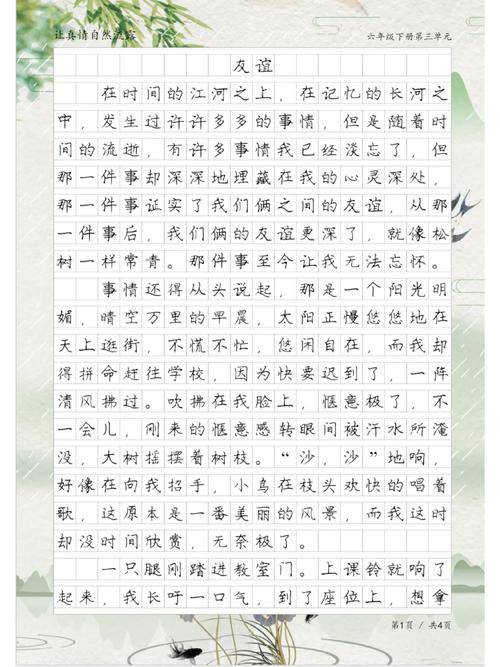 让真情自然流露
六年级下册第三单元
友谊
在时间的江河之上，在记忆的长河之
中，发生过许许多多的事情，但是随着时
间的流逝，有许多事情我已经淡忘了，但
那一件事却深深地埋藏在我的心灵深处，
那一件事证实了我们俩之间的友谊，从那
一件事后，我们俩的友谊更深了，就像松
树一样常青。那件事至今让我无法忘怀。
事情还得从头说起，那是一个阳光明
媚，晴空万里的早晨，太阳正慢悠悠地在
天上逛街，不慌不忙，悠闲自在，而我却
得拼命赶往学校，因为快要迟到了，一阵
清风拂过。吹拂在我脸上，惬意极了，不
一会儿，刚来的惬意感转眼间被汗水所淹
没，大树摇摆着树枝。“沙，沙”地响，
好像在向我招手，小鸟在枝头欢快的唱着
歌，这原本是一番美丽的风景，而我这时
却没时间欣赏，无奈极了。
一只腿刚踏进教室门。上课铃就响了
起来，我长吁一口气，到了座位上，想拿
第1页 / 共4页